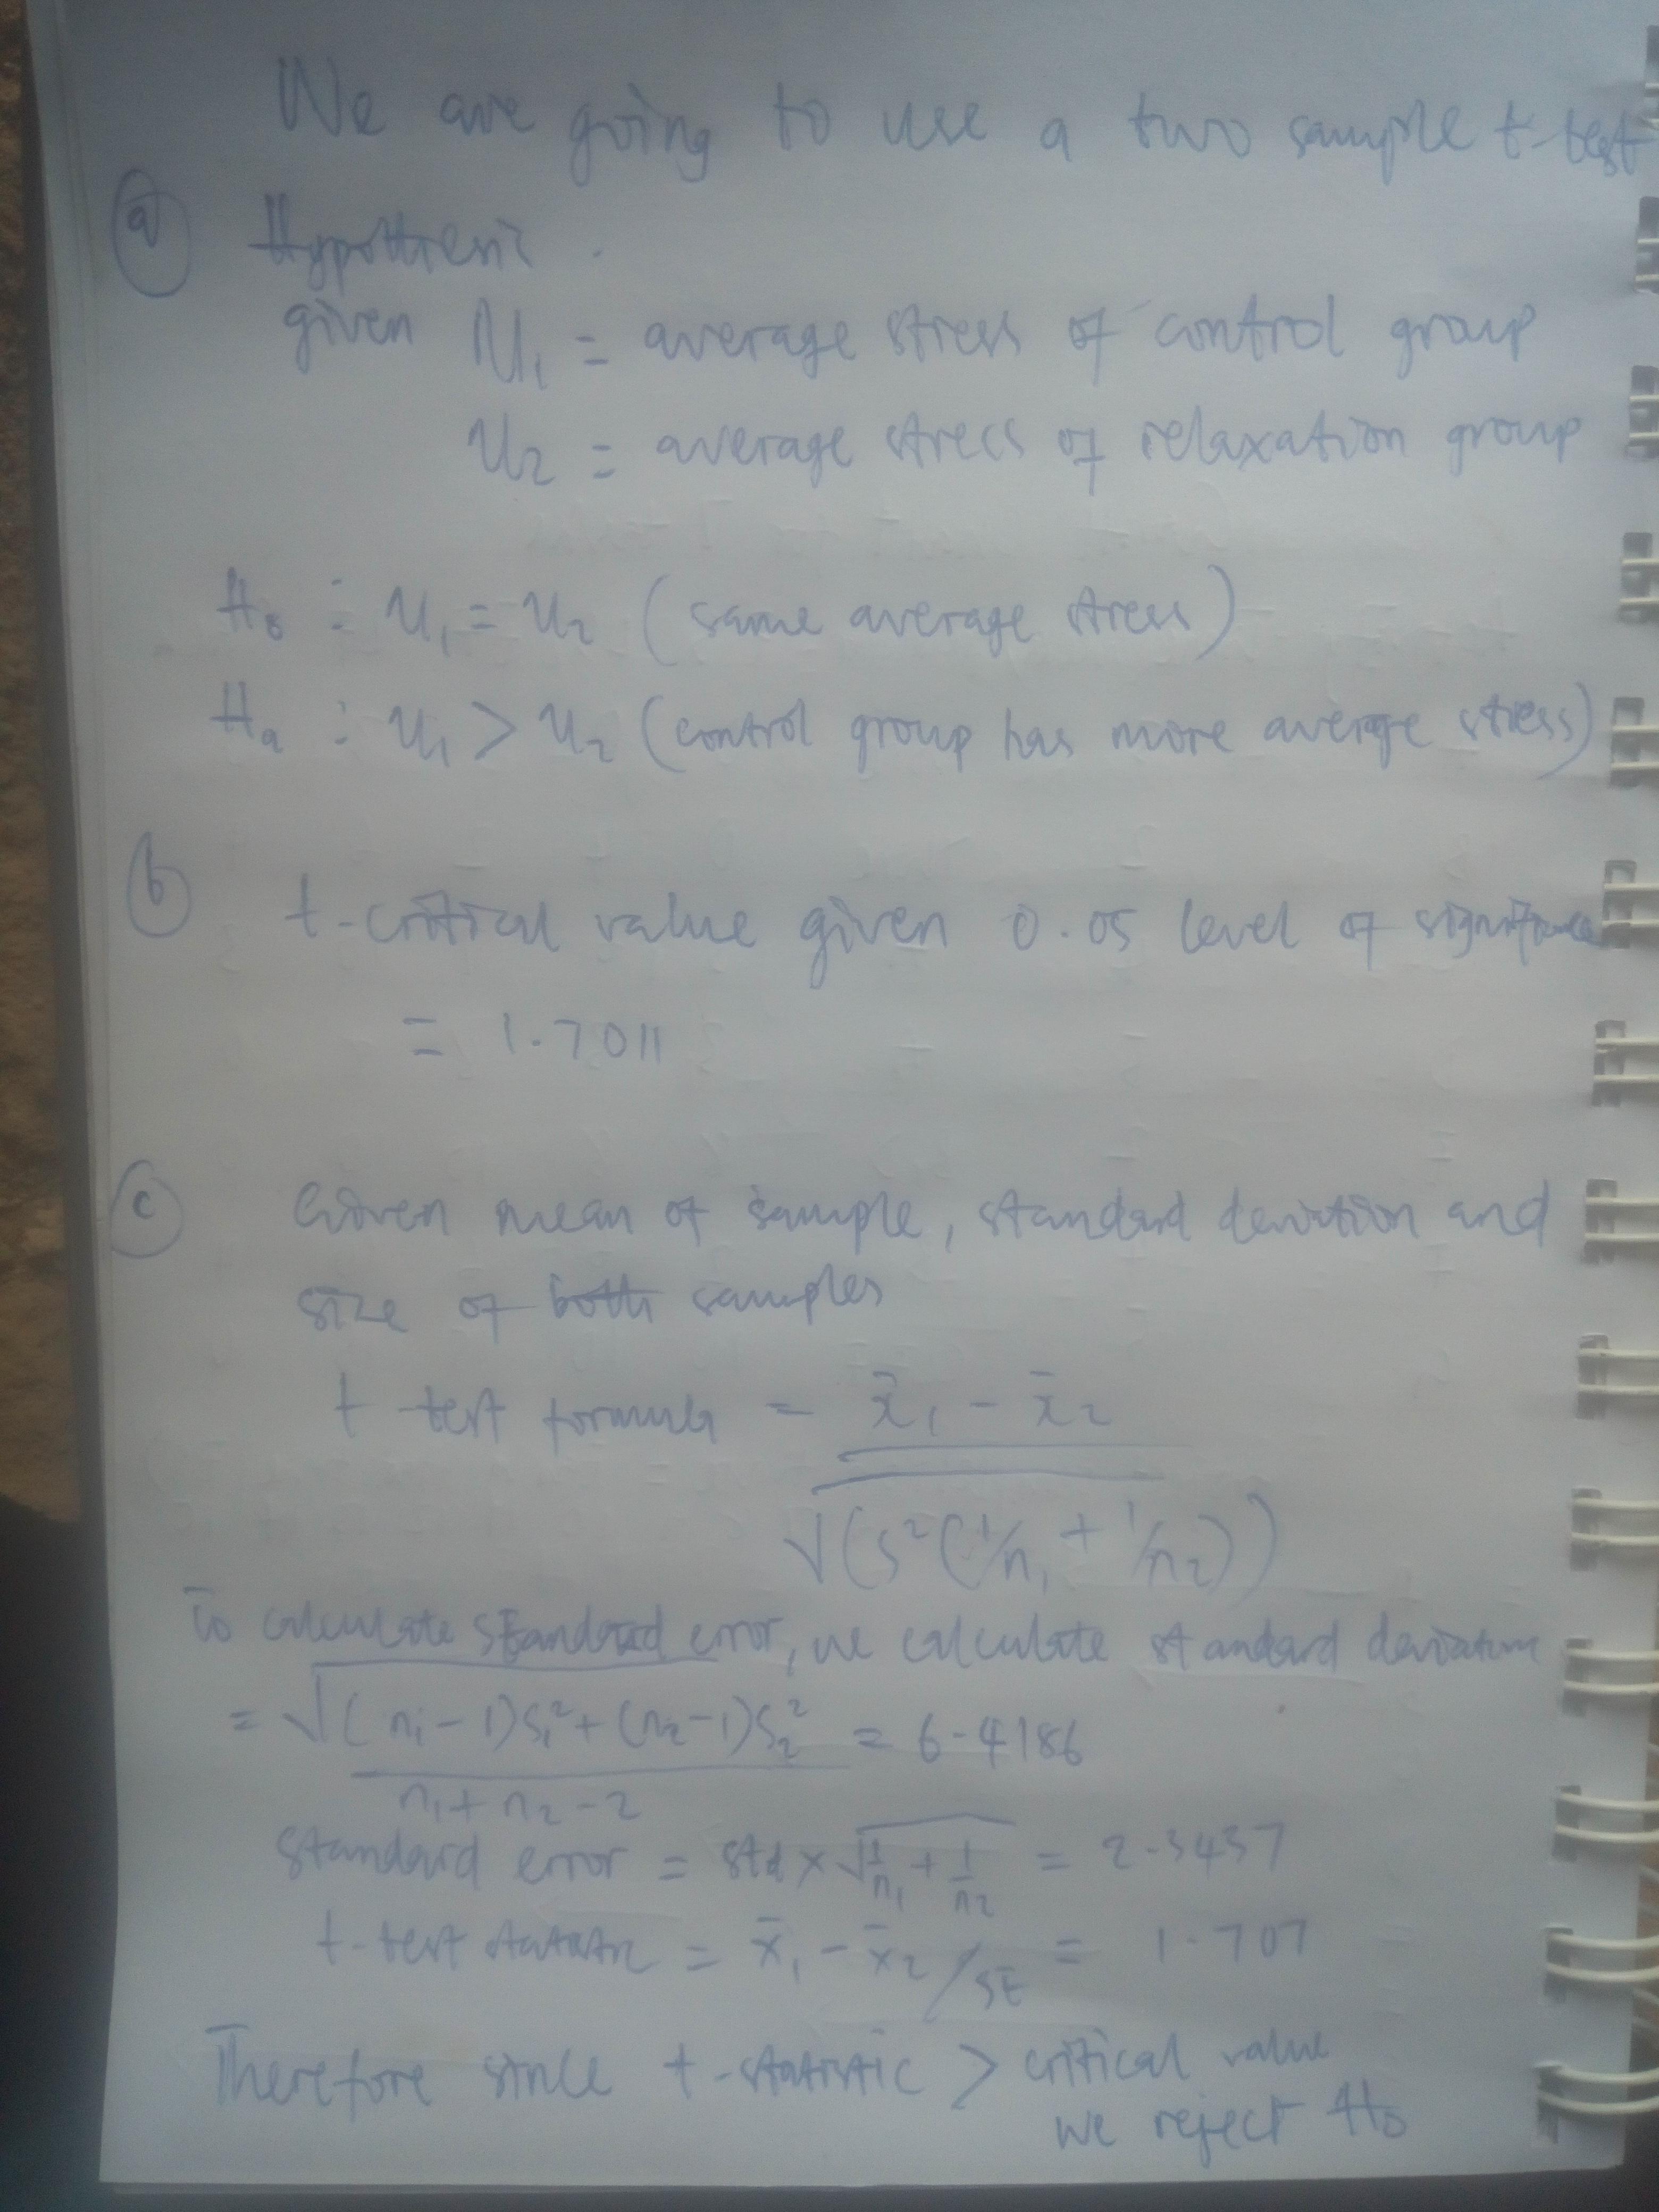 We are going to use a two sample t-test
(a) Hypothesis.
given U₁ = average stress of control group
U₂ = average stress of relaxation group
H₀ : U₁ = U₂ (same average stress)
Hₐ : U₁ > U₂ (control group has more average stress)
(b) t-critical value given 0.05 level of significance
= 1.7011
(c) Given mean of sample, standard deviation and
size of both samples
t-test formula = x̄₁ - x̄₂
√(s²(1/n₁ + 1/n₂))
To calculate standard error, we calculate standard deviation
= √(n₁-1)S₁² + (n₂-1)S₂² = 6.4186
n₁ + n₂ - 2
Standard error = std × √1/n₁ + 1/n₂ = 2.3437
t-test statistic = x̄₁ - x̄₂/SE = 1.707
Therefore since t-statistic > critical value
we reject H₀